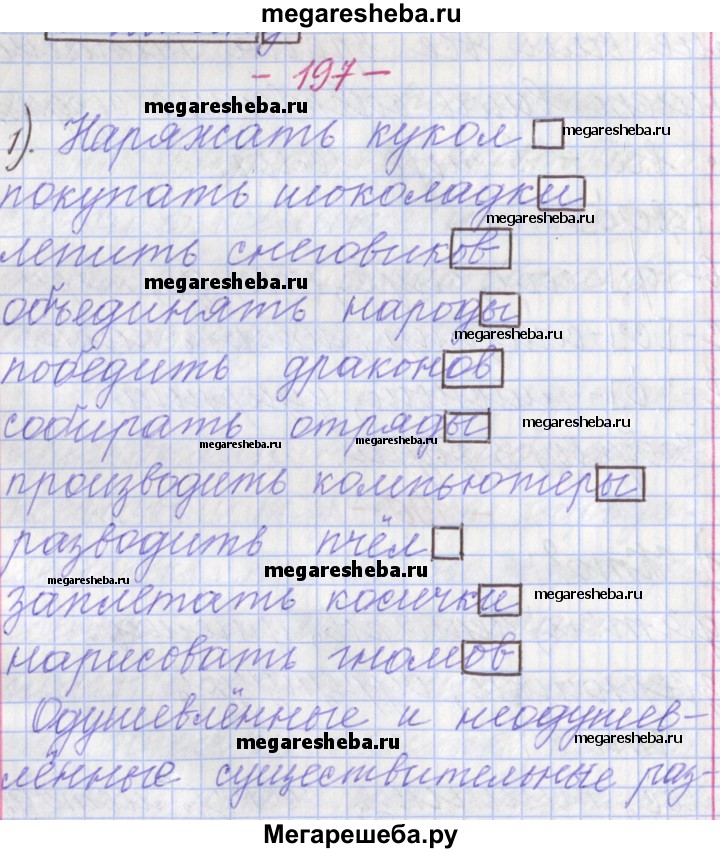 megaresheba.ru
- 197 -
megaresheba.ru
1). Наряжать кукол megaresheba.ru
покупать шоколадки
megaresheba.ru
лепить снеговиков
megaresheba.ru
объединять народы
megaresheba.ru
победить драконов
собирать отряды megaresheba.ru
megaresheba.ru megaresheba.ru
производить компьютеры
разводить пчёл
megaresheba.ru megaresheba.ru
заплетать косички megaresheba.ru
нарисовать гномов
Одушевлённые и неодушев-
megaresheba.ru megaresheba.ru
лённые существительные раз-
Мегарешеба.ру